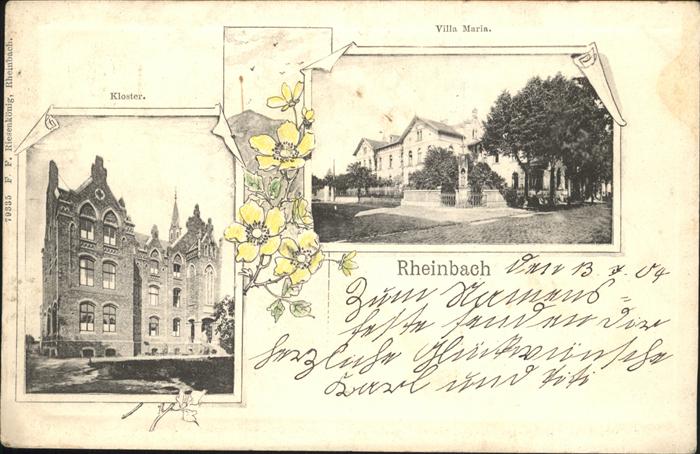 Villa Maria.
Kloster.
79335 F. F. Riesenkönig, Rheinbach.
Rheinbach den 13. 7. 04
Zum Namens=
feste senden Dir
herzliche Glückwünsche
Karl und Titi